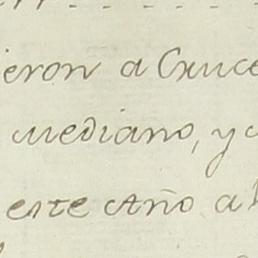 ieron a Cruce
mediano, y
este Año a